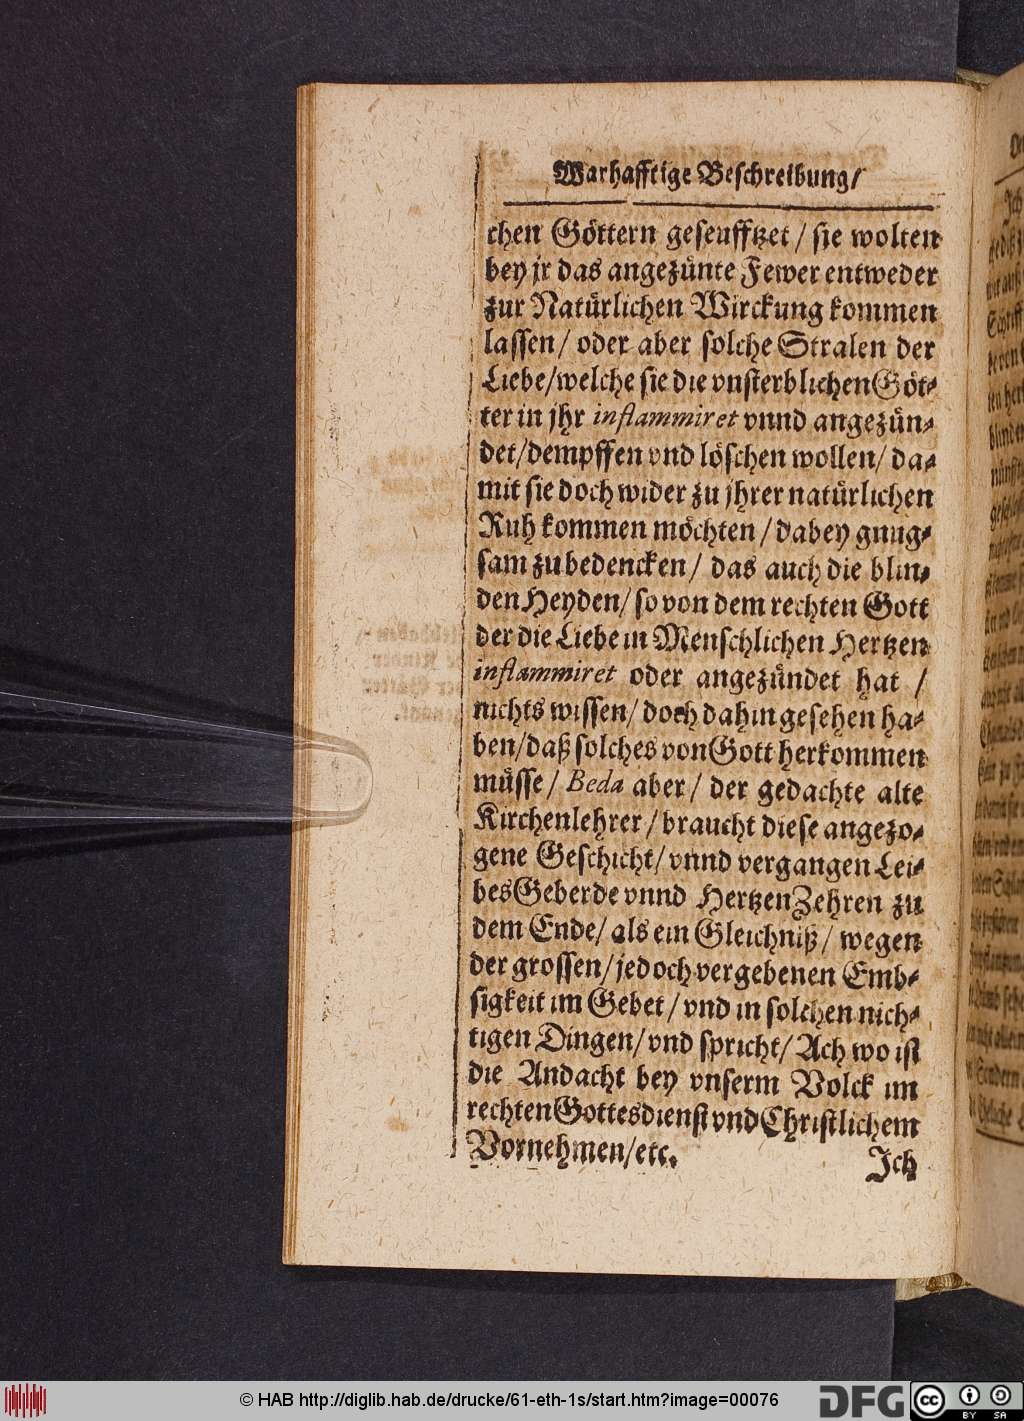 Warhafftige Beschreibung/
chen Göttern geseufftzet / sie wolten
bey jr das angezünte Fewer entweder
zur Natürlichen Wirckung kommen
lassen / oder aber solche Stralen der
Liebe/welche sie die vnsterblichen Göt-
ter in jhr inflammiret vnnd angezün-
det/dempffen vnd löschen wollen/ da-
mit sie doch wider zu jhrer natürlichen
Ruh kommen möchten / dabey gnug-
sam zubedencken / das auch die blin-
den Heyden/ so von dem rechten Gott
der die Liebe in Menschlichen Hertzen
inflammiret oder angezündet hat /
nichts wissen/ doch dahin gesehen ha-
ben/daß solches von Gott herkommen
müsse/ Beda aber / der gedachte alte
Kirchenlehrer / braucht diese angezo-
gene Geschicht/ vnnd vergangen Lei-
bes Geberde vnnd Hertzen Zehren zu
dem Ende/ als ein Gleichniß/ wegen
der grossen/ jedoch vergebenen Emb-
sigkeit im Gebet / vnd in solchen nich-
tigen Dingen/ vnd spricht/ Ach wo ist
die Andacht bey vnserm Volck im
rechten Gottesdienst vnd Christlichem
Vornehmen/etc.
Ich
© HAB http://diglib.hab.de/drucke/61-eth-1s/start.htm?image=00076
DFG
cc
BY SA